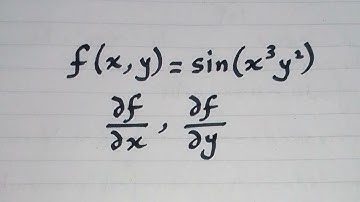 f(x,y)=sin(x³y²)
∂f/∂x , ∂f/∂y